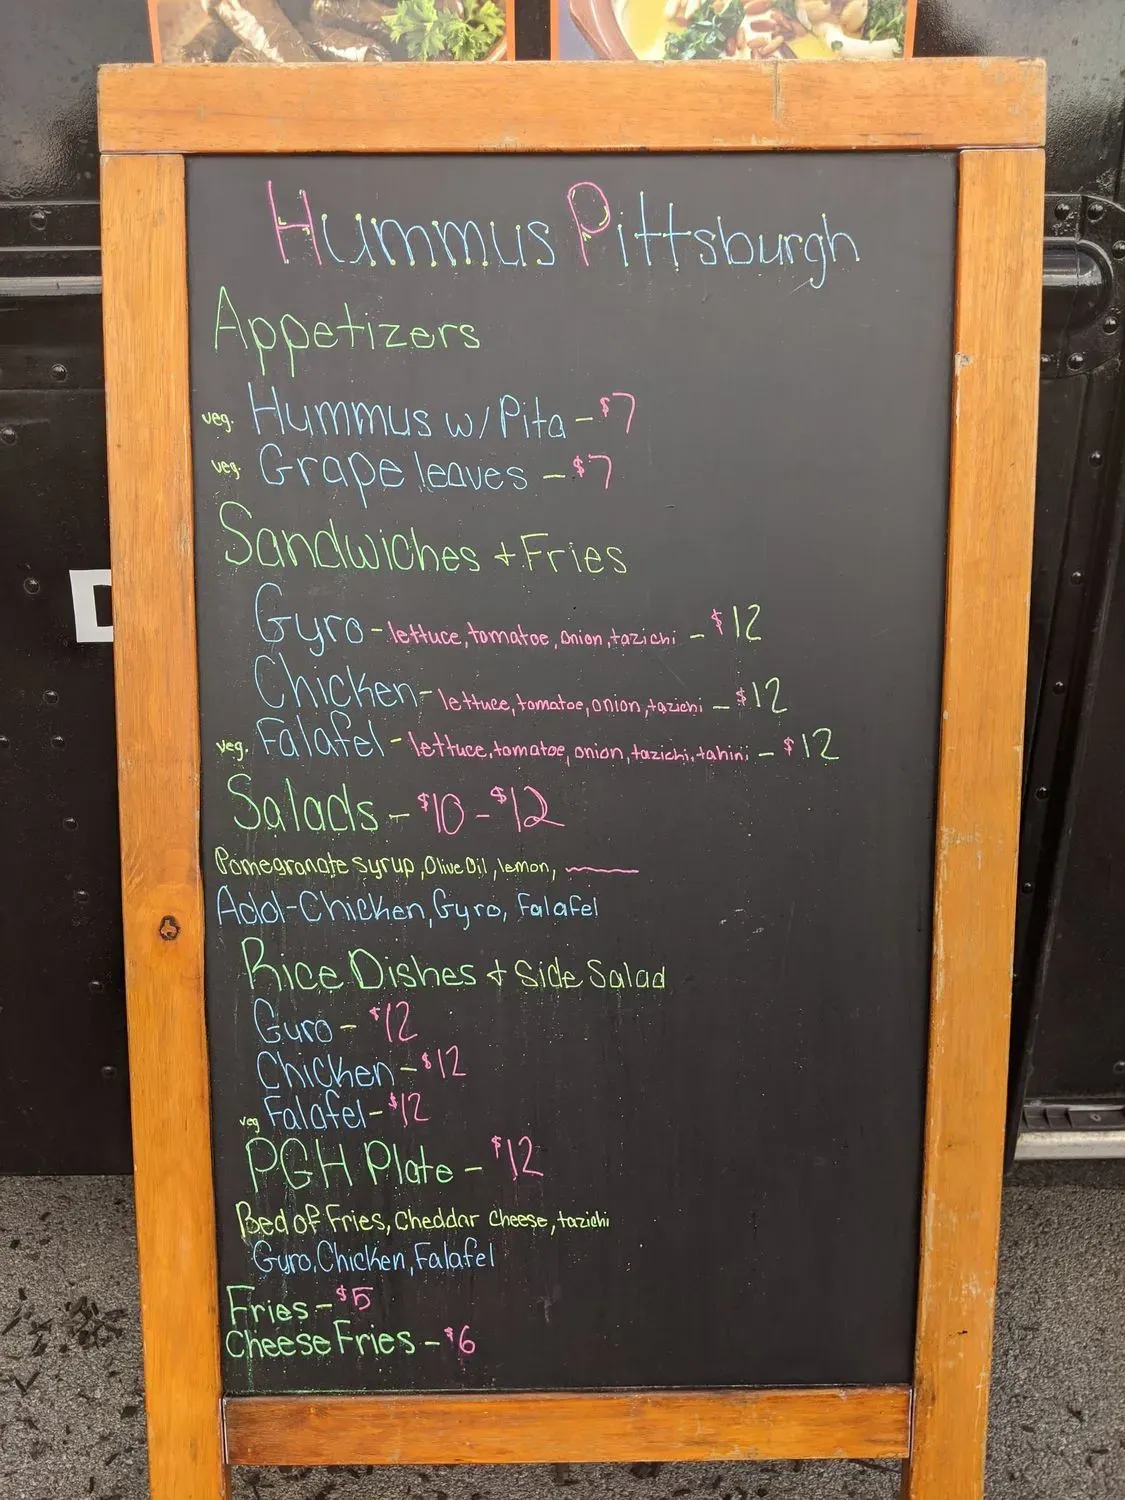 Hummus Pittsburgh
Appetizers
veg. Hummus w/ Pita - $7
veg. Grape leaves - $7
Sandwiches + Fries
Gyro - lettuce, tomatoe, onion, tazichi - $12
Chicken - lettuce, tomatoe, onion, tazichi - $12
veg. Falafel - lettuce, tomatoe, onion, tazichi, tahini - $12
Salads - $10 - $12
Pomegranate syrup, Olive Oil, lemon,
Add - Chicken, Gyro, Falafel
Rice Dishes + Side Salad
Gyro - $12
Chicken - $12
veg Falafel - $12
PGH Plate - $12
Bed of Fries, Cheddar Cheese, tazichi
Gyro, Chicken, Falafel
Fries - $5
Cheese Fries - $6